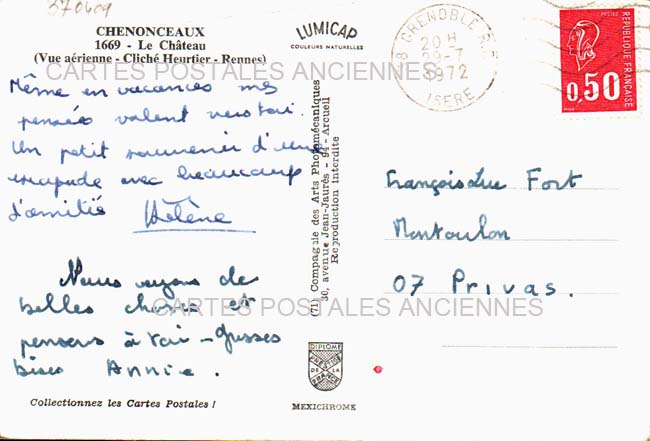 370609
CHENONCEAUX
1669 - Le Château
(Vue aérienne - Cliché Heurtier - Rennes)
CARTES POSTALES ANCIENNES
Même en vacances mes
pensées volent vers toi.
Un petit souvenir d'une
escapade avec beaucoup
d'amitié Hélène
Nous voyons de
belles choses et
CARTES POSTALES ANCIENNES
pensons à toi - Grosses
bises Annie.
Collectionnez les Cartes Postales !
LUMICAP
COULEURS NATURELLES
(71) Compagnie des Arts Photomécaniques
30, avenue Jean-Jaurès - 94 - Arcueil
Reproduction interdite
DIPLOME
PRESTIGE
DE LA
FRANCE
MEXICHROME
38 GRENOBLE R.P.
20 H
1972
ISERE
POSTES
REPUBLIQUE FRANÇAISE
0,50
François Luc Fort
07 Privas.